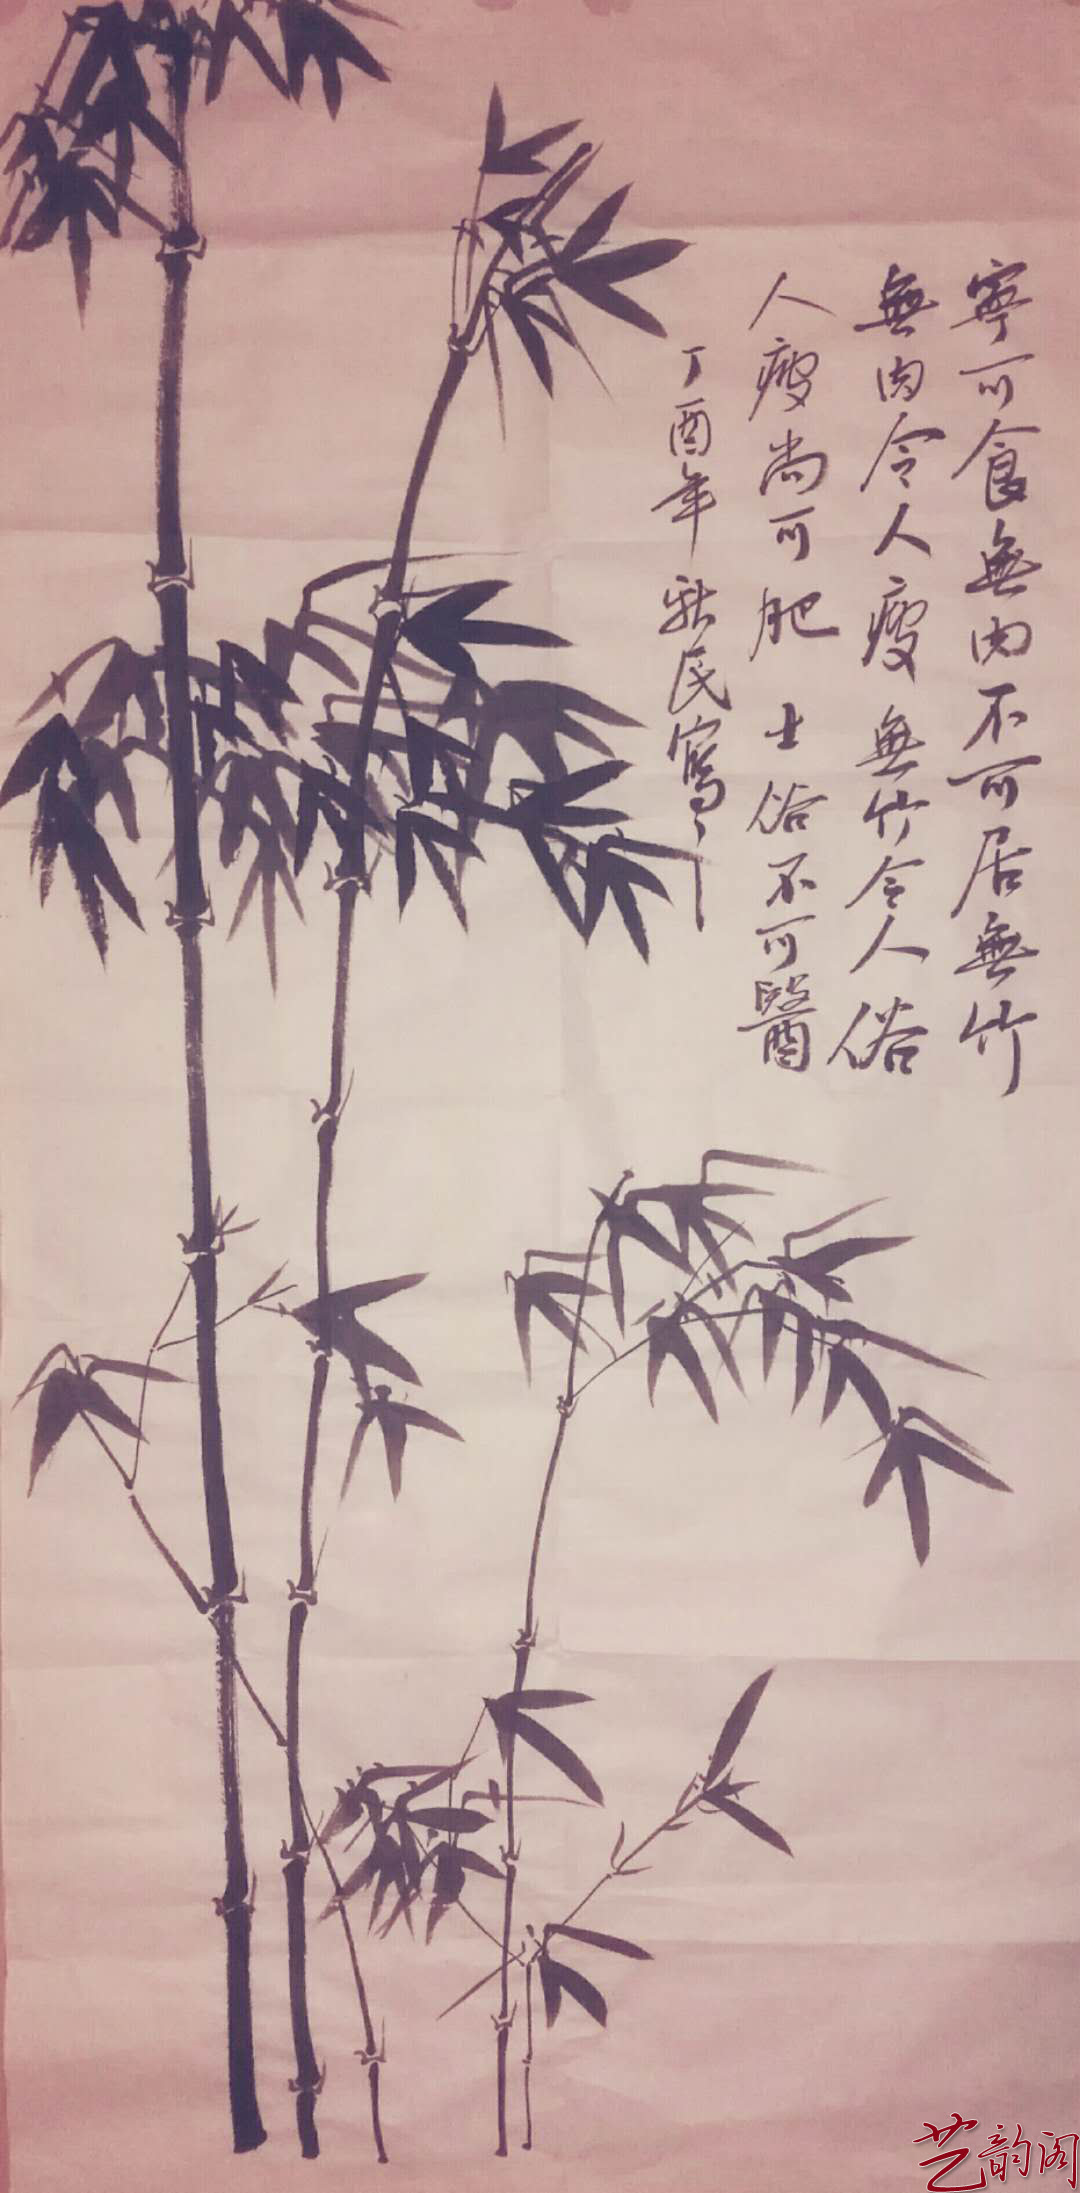 寧可食無肉不可居無竹
無肉令人瘦無竹令人俗
人瘦尚可肥士俗不可醫
丁酉年新民寫
艺韵阁